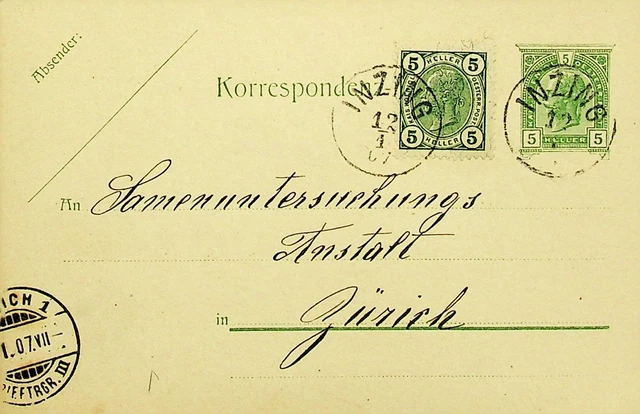 Absender:
Korresponden
5 HELLER 5
5 HELLER 5
5
5 HELLER 5
INZING
12
1
07
INZING
12
An Samenuntersuchungs
Anstalt
in Zürich
ICH 1
1.07.VII
IEFTRGR. III